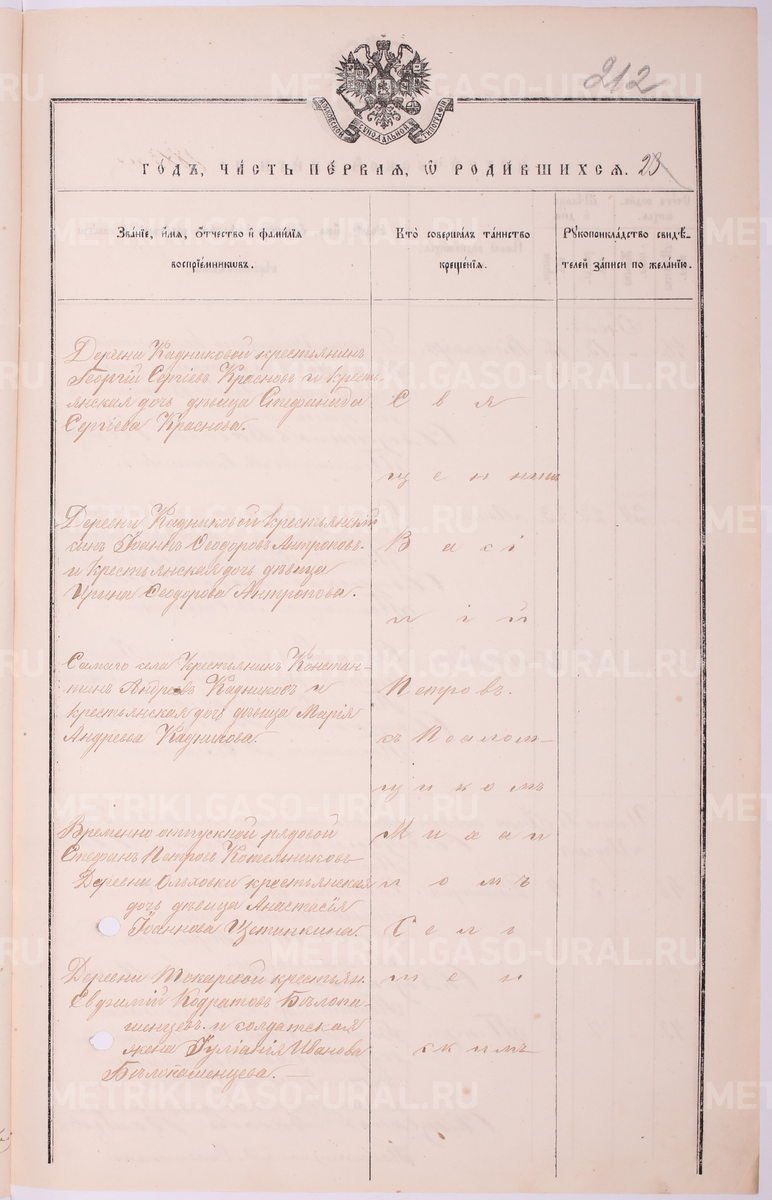 212
МОСКОВСКОЙ СѴНОДАЛЬНОЙ ТИПОГРАФІИ
ГОДЪ, ЧА́СТЬ ПЕ́РВАЯ, Ѿ РОДИ́ВШИХСЯ. 23
Зва́нїе, и́мя, о́тчество и҆ фами́лїя
воспрїе́мникѡвъ.
Кто̀ соверша́лъ та́инство
креще́нїя.
Рꙋкоприкла́дство свидѣ́-
телей за́писи по жела́нїю.
Деревни Кадниковой крестьянинъ
Георгій Сергіевъ Красновъ и крест-
янская дочь дѣвица Стефанида
Сергіева Краснова.
Свя
щенникъ
Деревни Кадниковой крестьянскій
сынъ Іоаннъ Ѳеодоровъ Антроповъ
и крестьянская дочь дѣвица
Ирина Ѳеодорова Антропова.
Васі
лій
Самаго села Крестьянинъ Констан-
тинъ Андреевъ Кадниковъ и
крестьянская дочь дѣвица Марія
Андреева Кадникова.
Петровъ.
съ Псалом
щикомъ
Временно отпускной рядовой
Стефанъ Петровъ Котельниковъ
Деревни Ольховки крестьянская
дочь дѣвица Анастасія
Іоаннова Щетинкина.
Михаи
ломъ
Сель
Деревни Токаревой крестьян.
Евфимій Кодратовъ Бѣлопа-
шенцевъ и солдатская
жена Іуліанія Иванова
Бѣлопашенцева.
мен
скимъ
METRIKI.GASO-URAL.RU